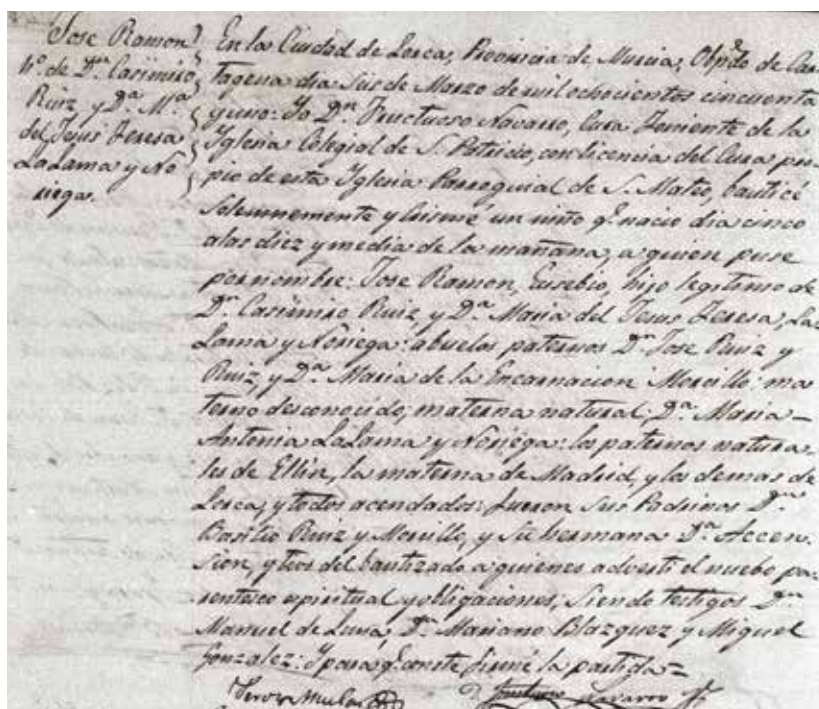 Jose Ramon
h.º de D.n Casimiro
Ruiz, y D.ª M.ª
del Jesus Teresa
LaLama y No
riega.
En la Ciudad de Lorca, Provincia de Murcia, Obpdo de Car
tagena dia Seis de Marzo de mil ochocientos cincuenta
y uno: Yo D.n Fructuoso Navarro, Cura Teniente de la
Yglesia Colegial de S. Patricio, con licencia del Cura pro
pio de esta Yglesia Parroquial de S. Mateo, bauticé
Solemnemente y Crismé un niño q.e nacio dia cinco
alas diez y media de la mañana, a quien puse
por nombre: Jose Ramon, Eusebio, hijo legitimo de
D.n Casimiro Ruiz, y D.ª Maria del Jesus Teresa, La
Lama y Noriega: abuelos paternos D.n Jose Ruiz y
Ruiz, y D.ª Maria de la Encarnacion Morcillo: ma
terno desconocido, materna natural, D.ª Maria
Antonia LaLama y Noriega: los paternos natura
les de Ellin, la materna de Madrid, y los demas de
Lorca, y todos acendados: fueron Sus Padrinos D.n
Basilio Ruiz y Morcillo, y Su hermana D.ª Accen
sion, y tios del bautizado a quienes advertí el nuebo pa
rentesco espiritual y obligaciones; Siendo testigos D.n
Manuel de Luna, D.n Mariano Blazquez y Miguel
Gonzalez: Y para q.e conste firmé la partida=
Fructuoso Navarro